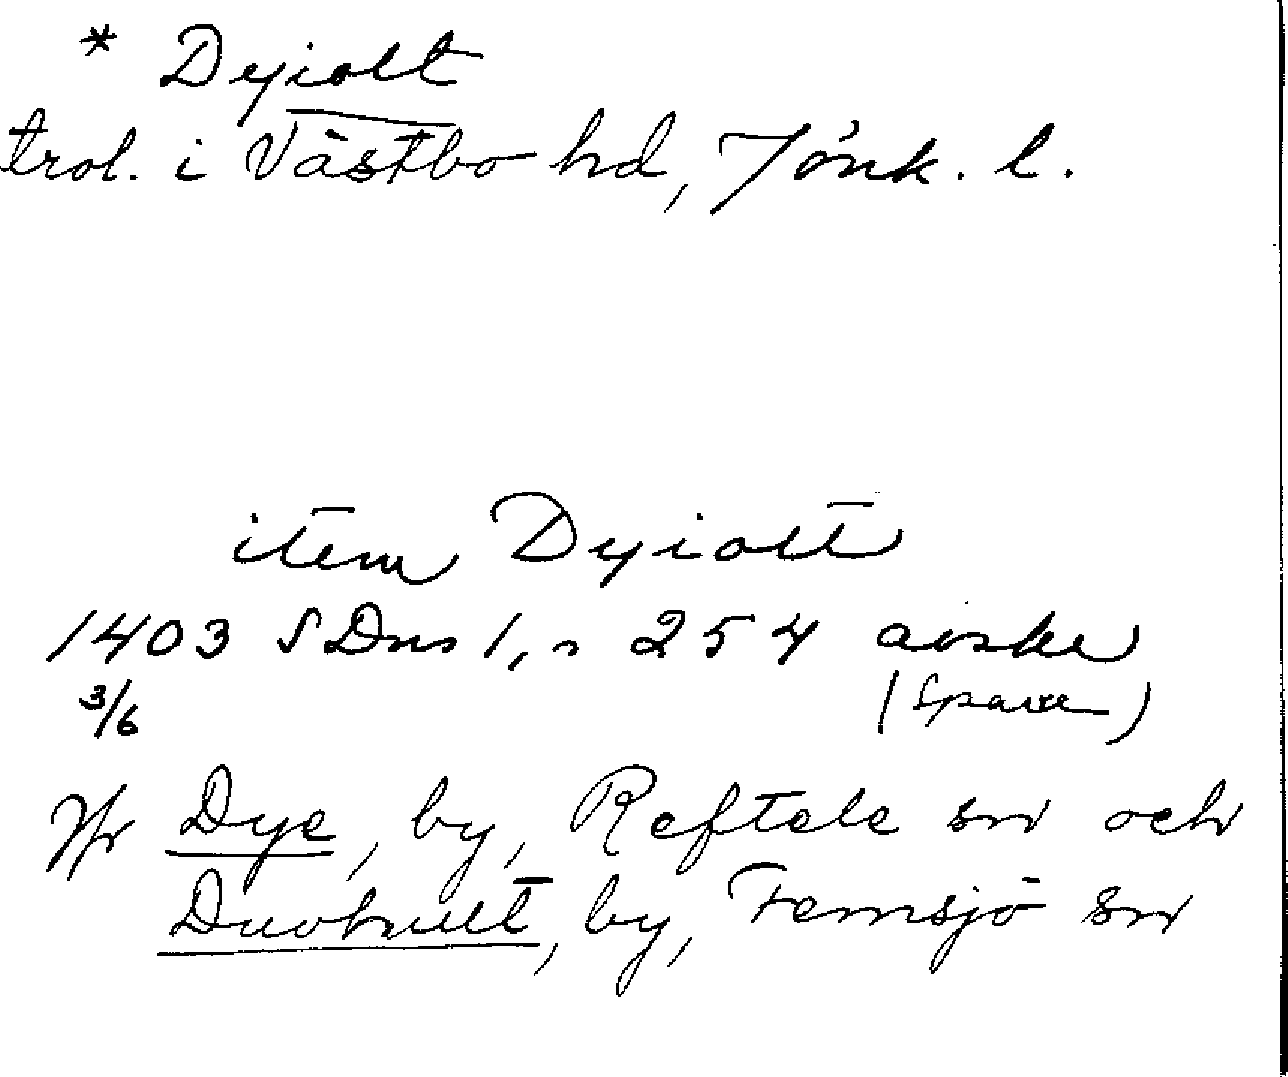 * Dyiolt
trol. i Västbo hd, Jönk. l.
item Dyiolt
1403 SDns 1, s 254 avskr
3/6 (Sparre)
Jfr Dye, by, Reftele sn och
Duvhult, by, Femsjö sn